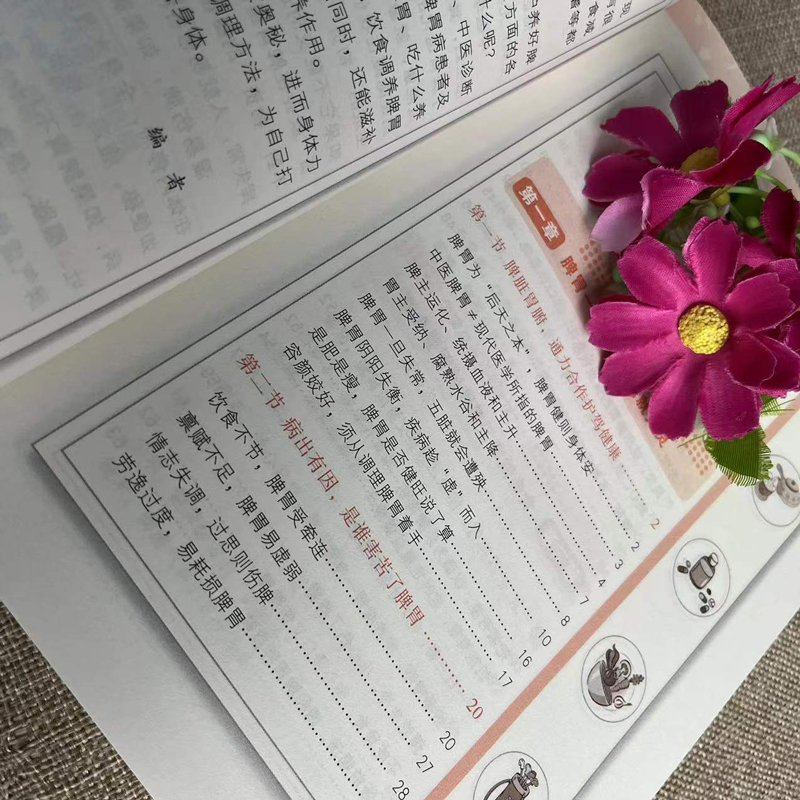 现
有很
看等都
中养好脾
方面的各
什么呢?
、中医诊断
脾胃病患者及
胃、吃什么养
、饮食调养脾胃
同时,还能滋补
养作用。
奥秘,进而身体力
调理方法,为自己打
身体。
编 者
第一章 脾胃
第一节 脾脏胃腑,通力合作护驾健康 …… 2
脾胃为“后天之本”,脾胃健则身体安 …… 2
中医脾胃≠现代医学所指的脾胃 …… 3
脾主运化、统摄血液和主升 …… 4
胃主受纳、腐熟水谷和主降 …… 7
脾胃一旦失常,五脏就会遭殃 …… 8
脾胃阴阳失衡,疾病趁“虚”而入 …… 10
是肥是瘦,脾胃是否健旺说了算 …… 16
容颜姣好,须从调理脾胃着手 …… 17
第二节 病出有因,是谁害苦了脾胃 …… 20
饮食不节,脾胃受牵连 …… 20
禀赋不足,脾胃易虚弱 …… 27
情志失调,过思则伤脾 …… 28
劳逸过度,易耗损脾胃 ……